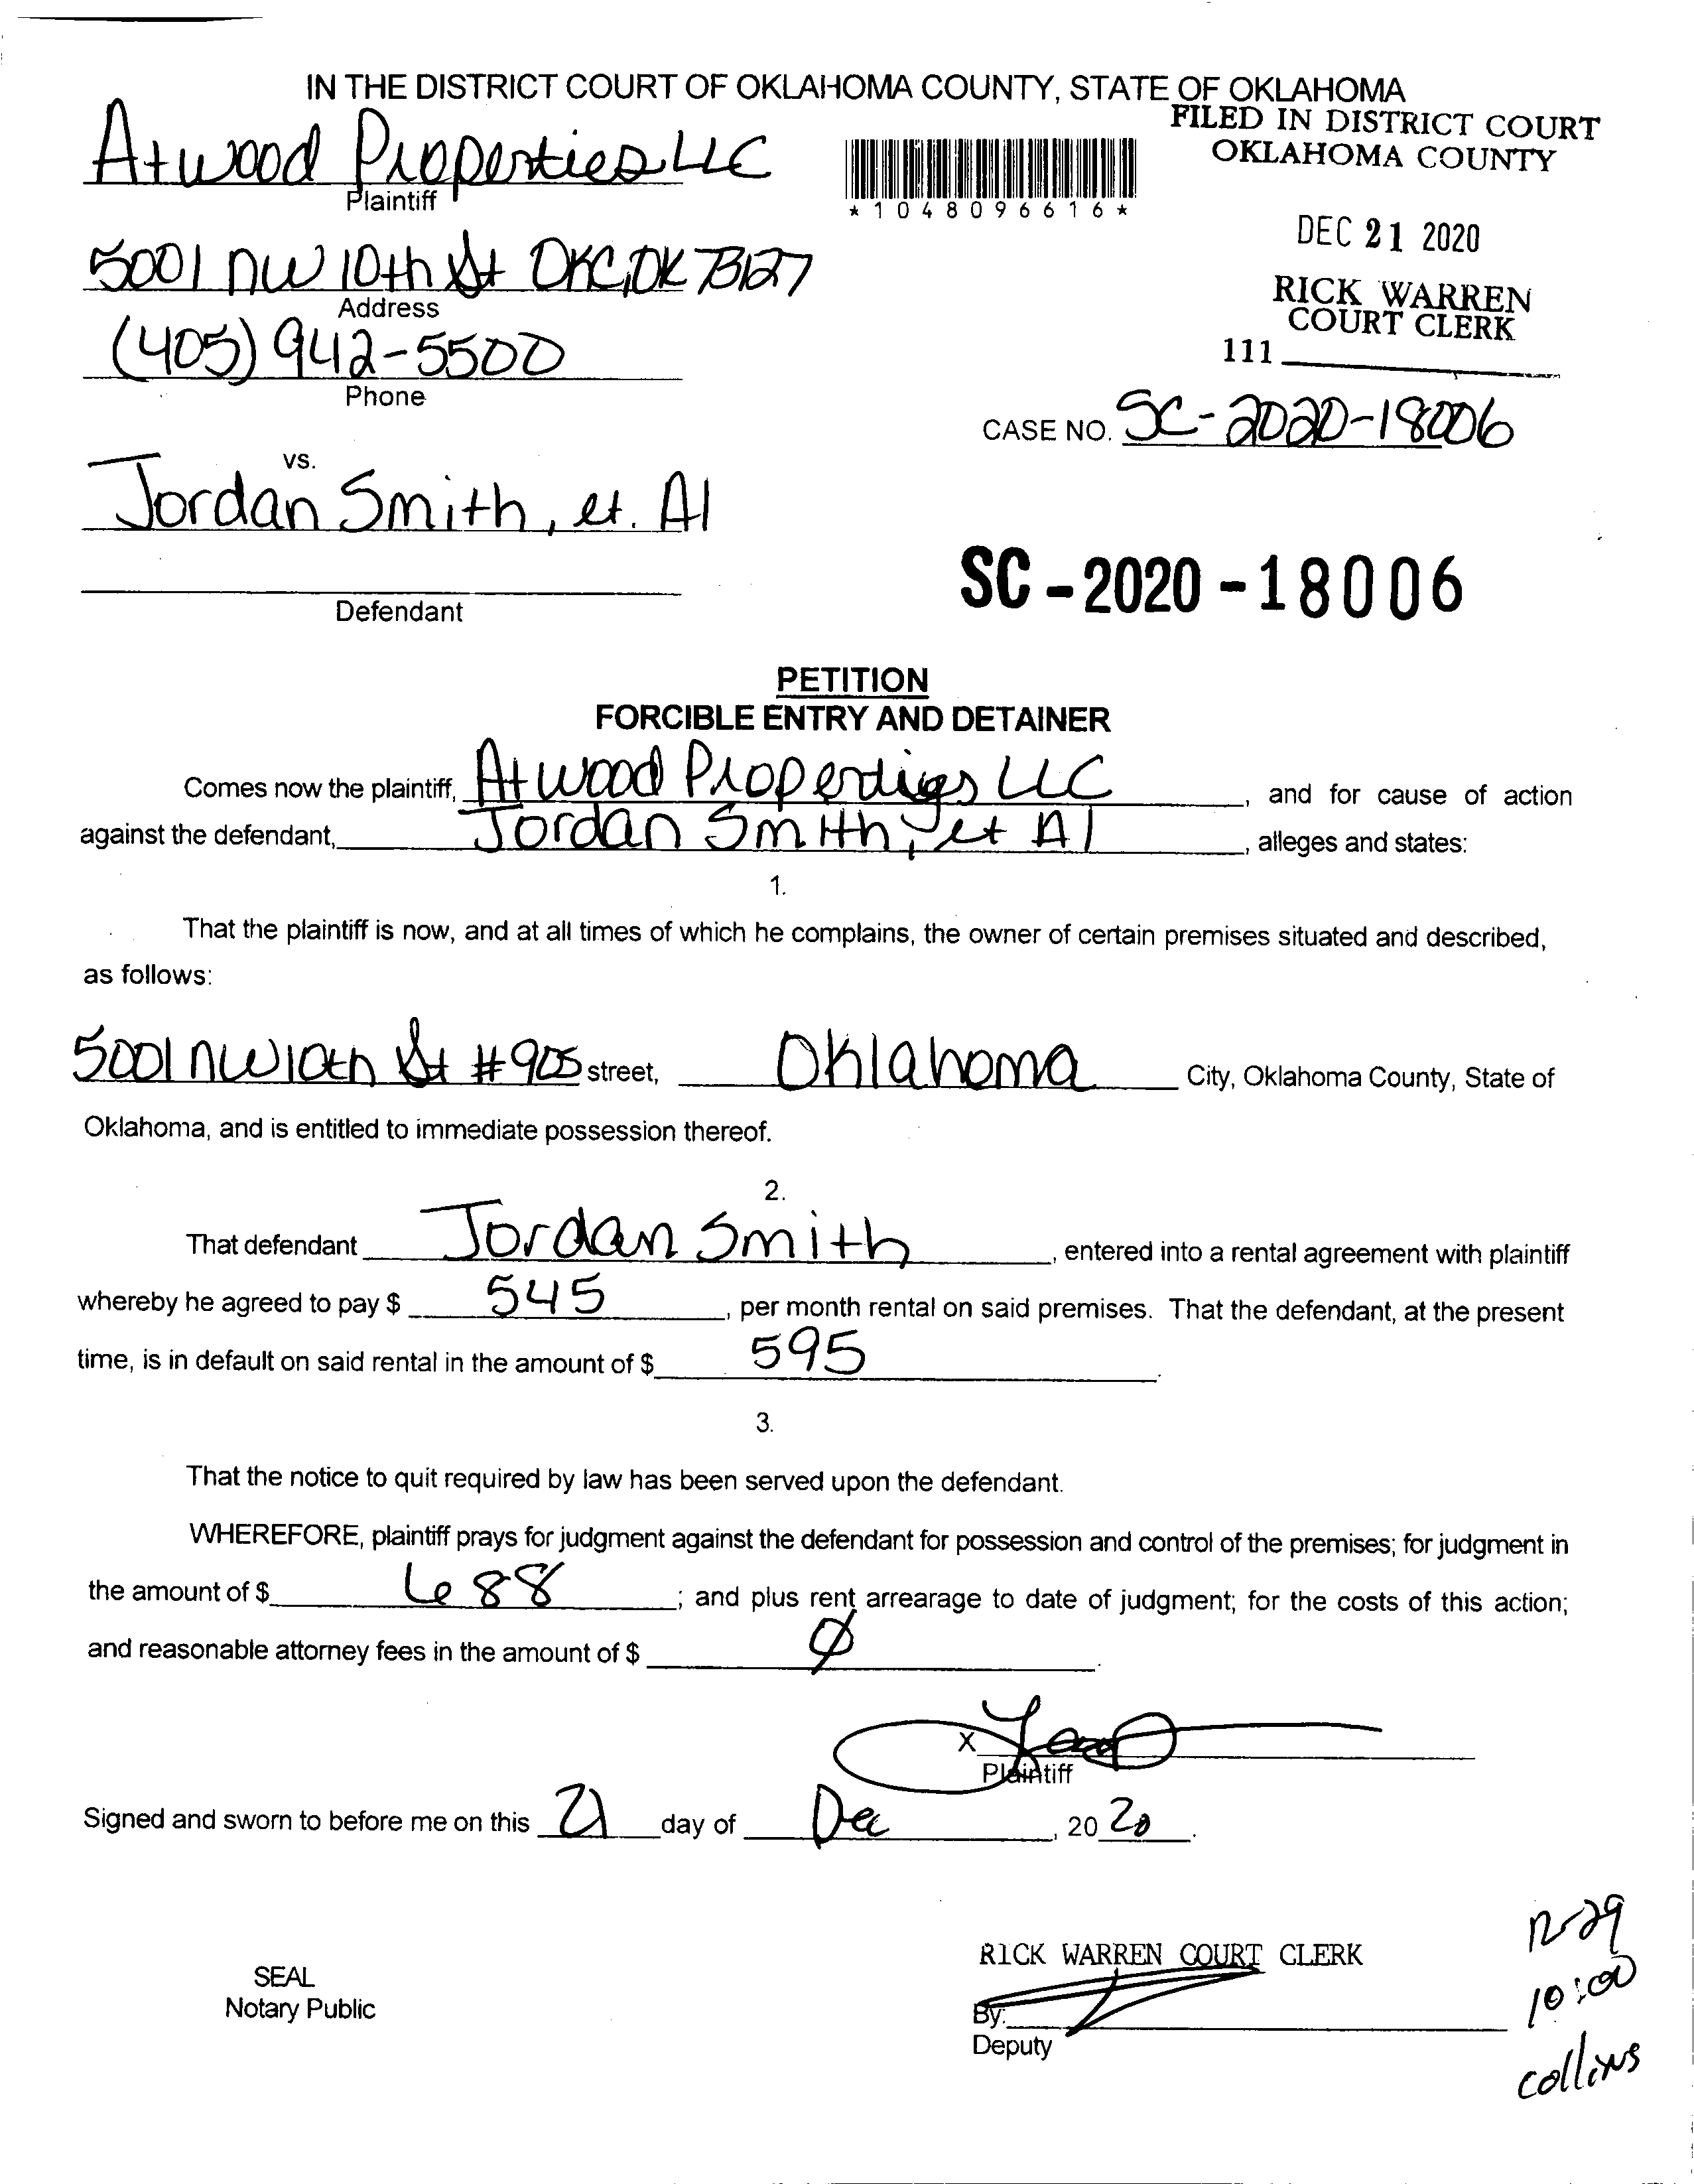 IN THE DISTRICT COURT OF OKLAHOMA COUNTY, STATE OF OKLAHOMA
FILED IN DISTRICT COURT
OKLAHOMA COUNTY
Atwood Properties LLC
Plaintiff
*1048096616*
DEC 21 2020
5001 NW 10th St OKC, OK 73127
Address
RICK WARREN
COURT CLERK
(405) 942-5500
Phone
111
CASE NO. SC-2020-18006
vs.
Jordan Smith, et. Al
Defendant
SC-2020-18006
PETITION
FORCIBLE ENTRY AND DETAINER
Comes now the plaintiff, Atwood Properties LLC, and for cause of action
against the defendant, Jordan Smith, et Al, alleges and states:
1.
That the plaintiff is now, and at all times of which he complains, the owner of certain premises situated and described,
as follows:
5001 NW 10th St #905 street, Oklahoma City, Oklahoma County, State of
Oklahoma, and is entitled to immediate possession thereof.
2.
That defendant Jordan Smith, entered into a rental agreement with plaintiff
whereby he agreed to pay $ 545, per month rental on said premises. That the defendant, at the present
time, is in default on said rental in the amount of $ 595.
3.
That the notice to quit required by law has been served upon the defendant.
WHEREFORE, plaintiff prays for judgment against the defendant for possession and control of the premises; for judgment in
the amount of $ 688; and plus rent arrearage to date of judgment; for the costs of this action;
and reasonable attorney fees in the amount of $ Ø.
X
Plaintiff
Signed and sworn to before me on this 21 day of Dec, 2020.
12-29
10:00
collins
SEAL
Notary Public
RICK WARREN COURT CLERK
By:
Deputy